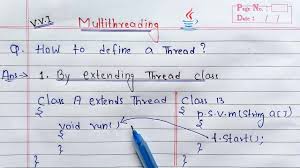 V.V.I
Multithreading
Java
Page No.
Date: / /
Q. How to define a Thread?
Ans → 1. By extending Thread class
Class A extends Thread
{
void run()
{
}
}
Class B
{
p.s.v.m(String a[])
{
t.start();
}